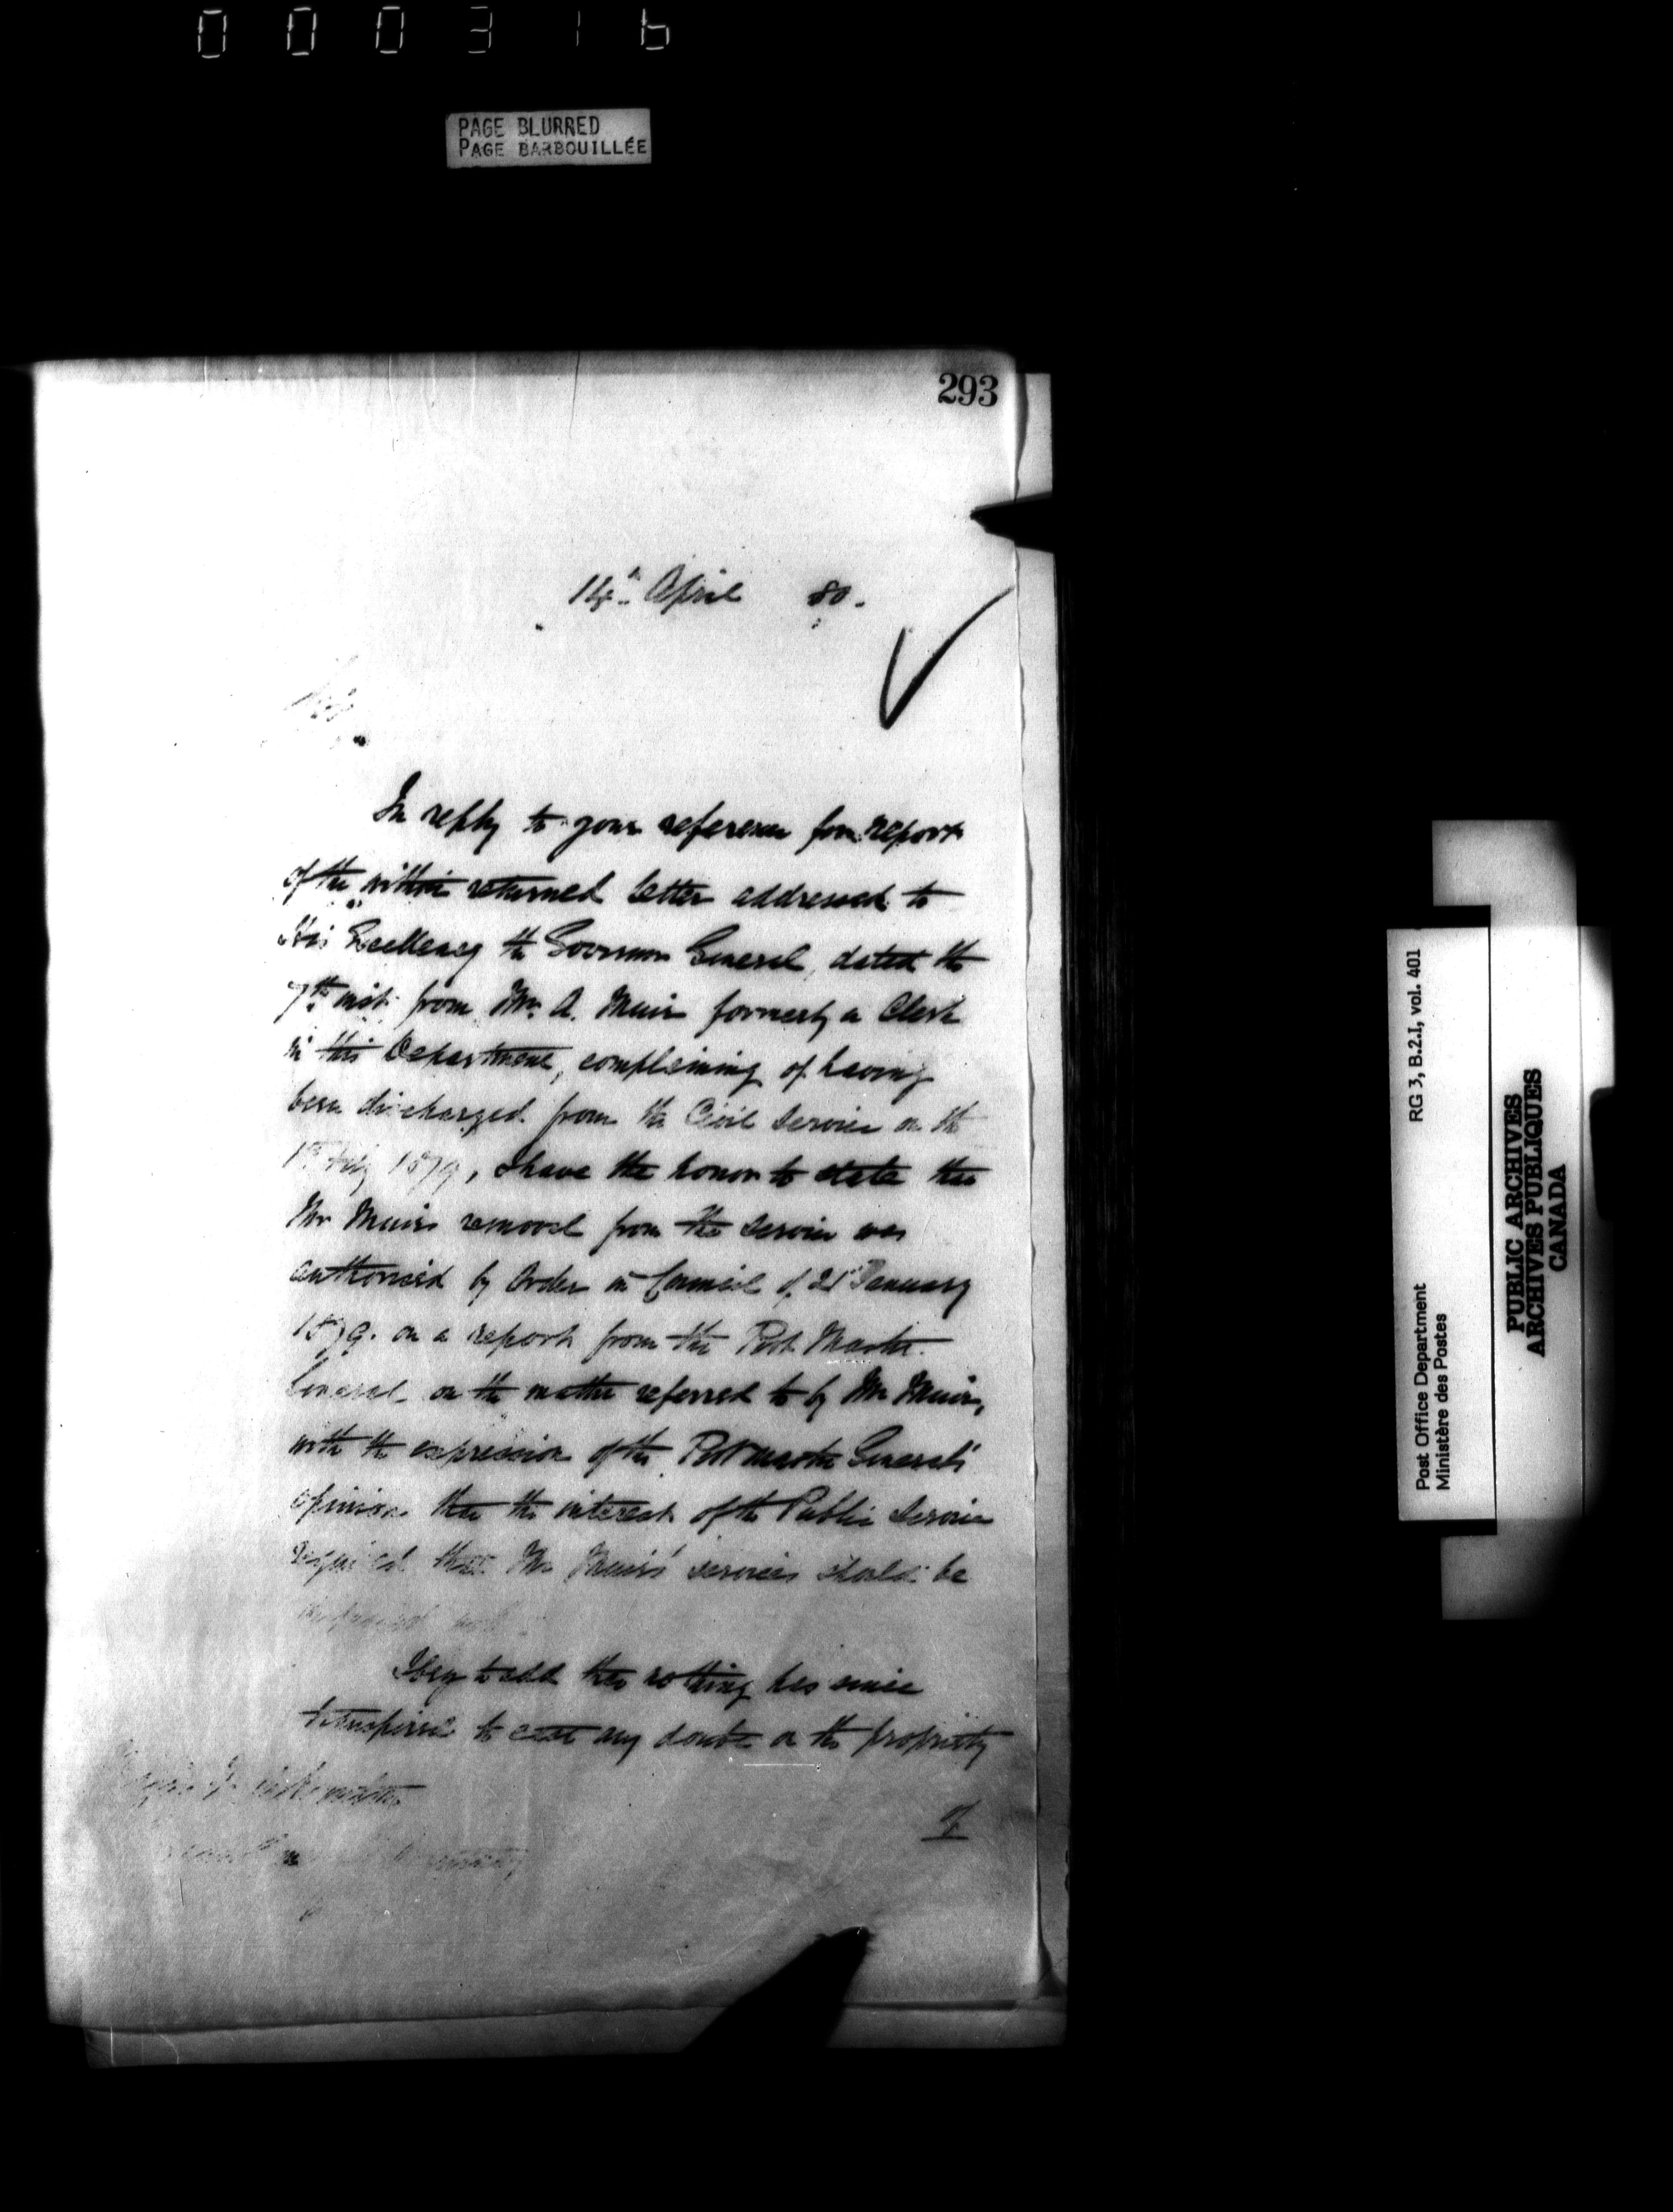 000316
PAGE BLURRED
PAGE BARBOUILLÉE
293
14th April 80.
Sir,
In reply to your reference for report
of the within returned letter addressed to
His Excellency the Governor General, dated the
7th inst. from Mr. A. Muir formerly a Clerk
in this Department, complaining of having
been discharged from the Civil Service on the
1st 1879, I have the honor to state that
Mr Muir's removal from the service was
authorised by Order in Council of 21 January
1879. on a report from the Post Master
General on the matter referred to by Mr Muir,
with the expression of the Postmaster General's
opinion that the interest of the Public Service
required that Mr Muir's services should be
dispensed with.
I beg to add that nothing has since
transpired to cast any doubt on the propriety
of
RG 3, B.2.1, vol. 401
Post Office Department
Ministère des Postes
PUBLIC ARCHIVES
ARCHIVES PUBLIQUES
CANADA